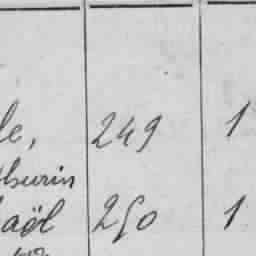 le, 249 1
thurin
aöl 250 1